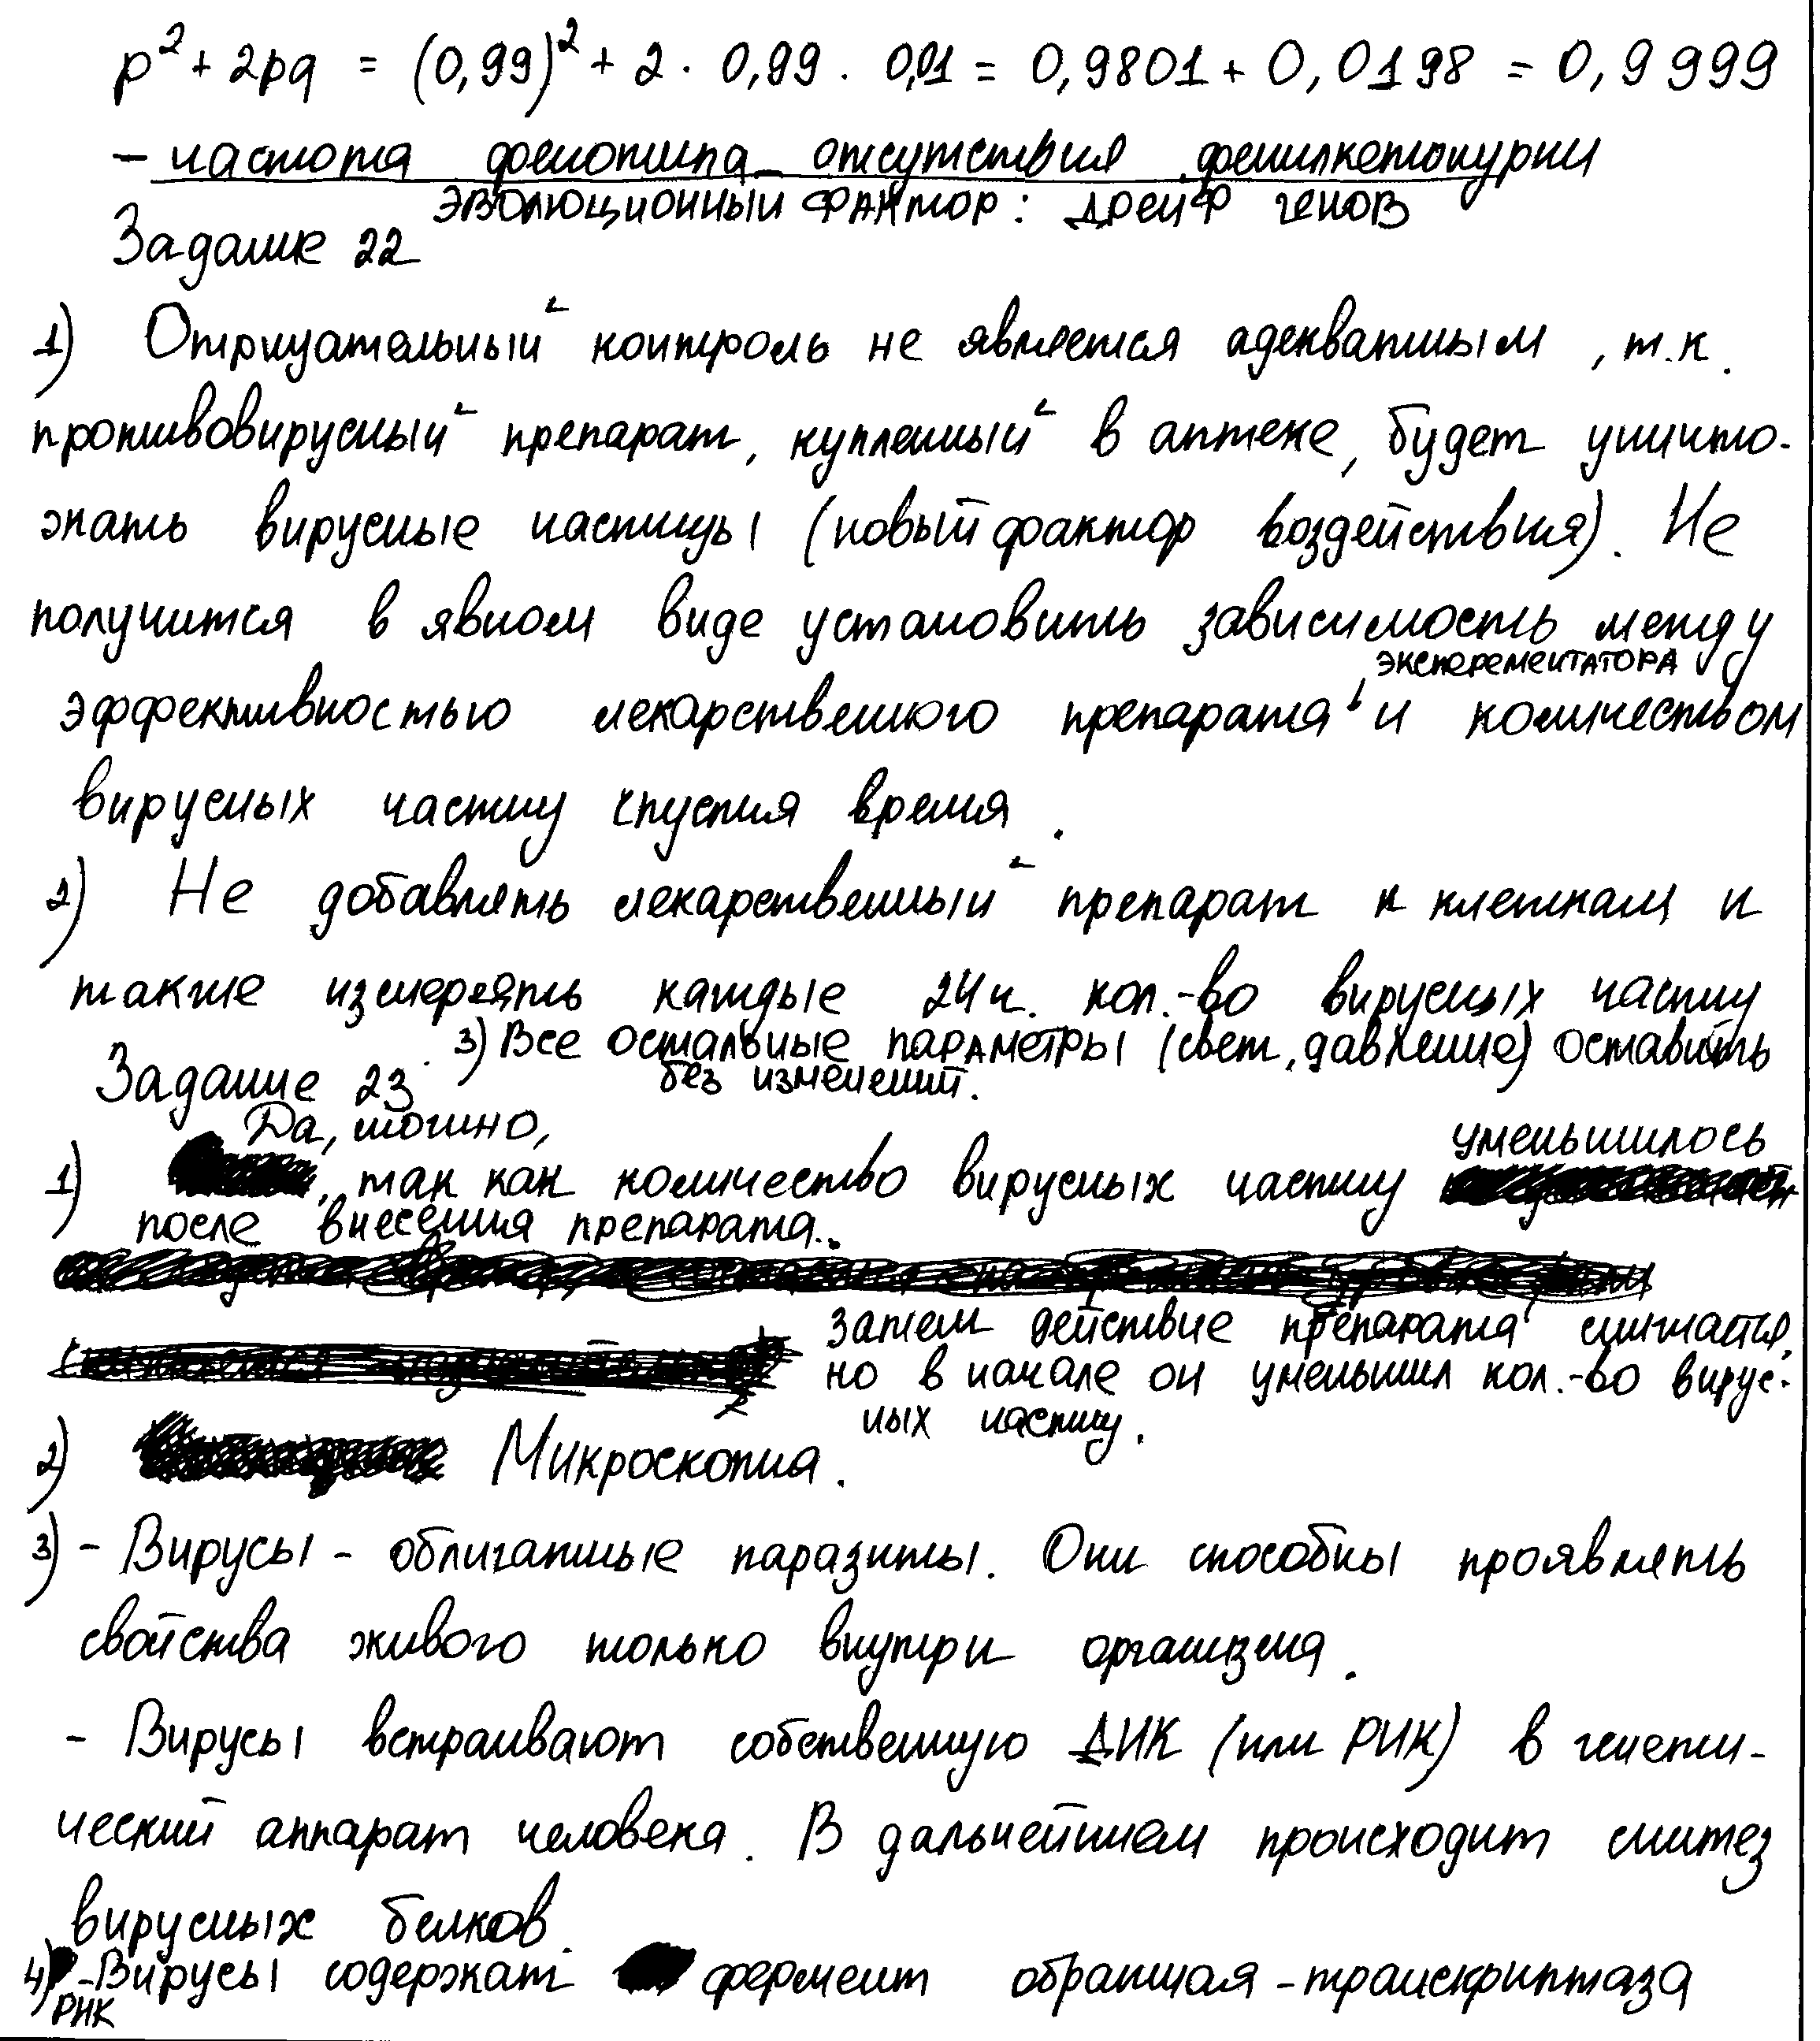 p² + 2pq = (0,99)² + 2 · 0,99 · 0,01 = 0,9801 + 0,0198 = 0,9999
– частота фенотипа отсутствия фенилкетонурии
эволюционный фактор: дрейф генов
Задание 22
1) Отрицательный контроль не является адекватным, т.к.
противовирусный препарат, купленный в аптеке, будет уничто-
жать вирусные частицы (новый фактор воздействия). Не
получится в явном виде установить зависимость между
эксперементатора
эффективностью лекарственного препарата и количеством
вирусных частиц спустя время.
2) Не добавлять лекарственный препарат к клеткам и
также измерять каждые 24 ч. кол.-во вирусных частиц
3) Все остальные параметры (свет, давление) оставить
без изменений.
Задание 23
Да, можно,
уменьшилось
1) , так как количество вирусных частиц
после внесения препарата.
затем действие препарата
но в начале он уменьшил кол.-во вирус-
ных частиц.
2) Микроскопия.
3) – Вирусы – облигатные паразиты. Они способны проявлять
свойства живого только внутри организма.
– Вирусы встраивают собственную ДНК (или РНК) в генети-
ческий аппарат человека. В дальнейшем происходит синтез
вирусных белков.
4) – Вирусы содержат фермент обратная-транскриптаза
РНК